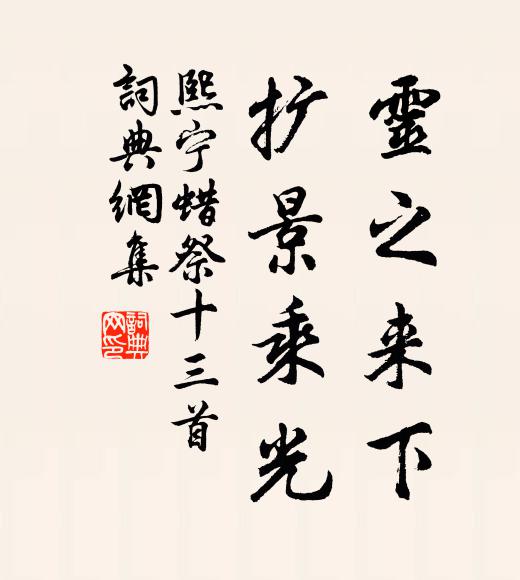 靈之来下
扩景乘光
熙宁蜡祭十三首
詞典網集
詞典
网印